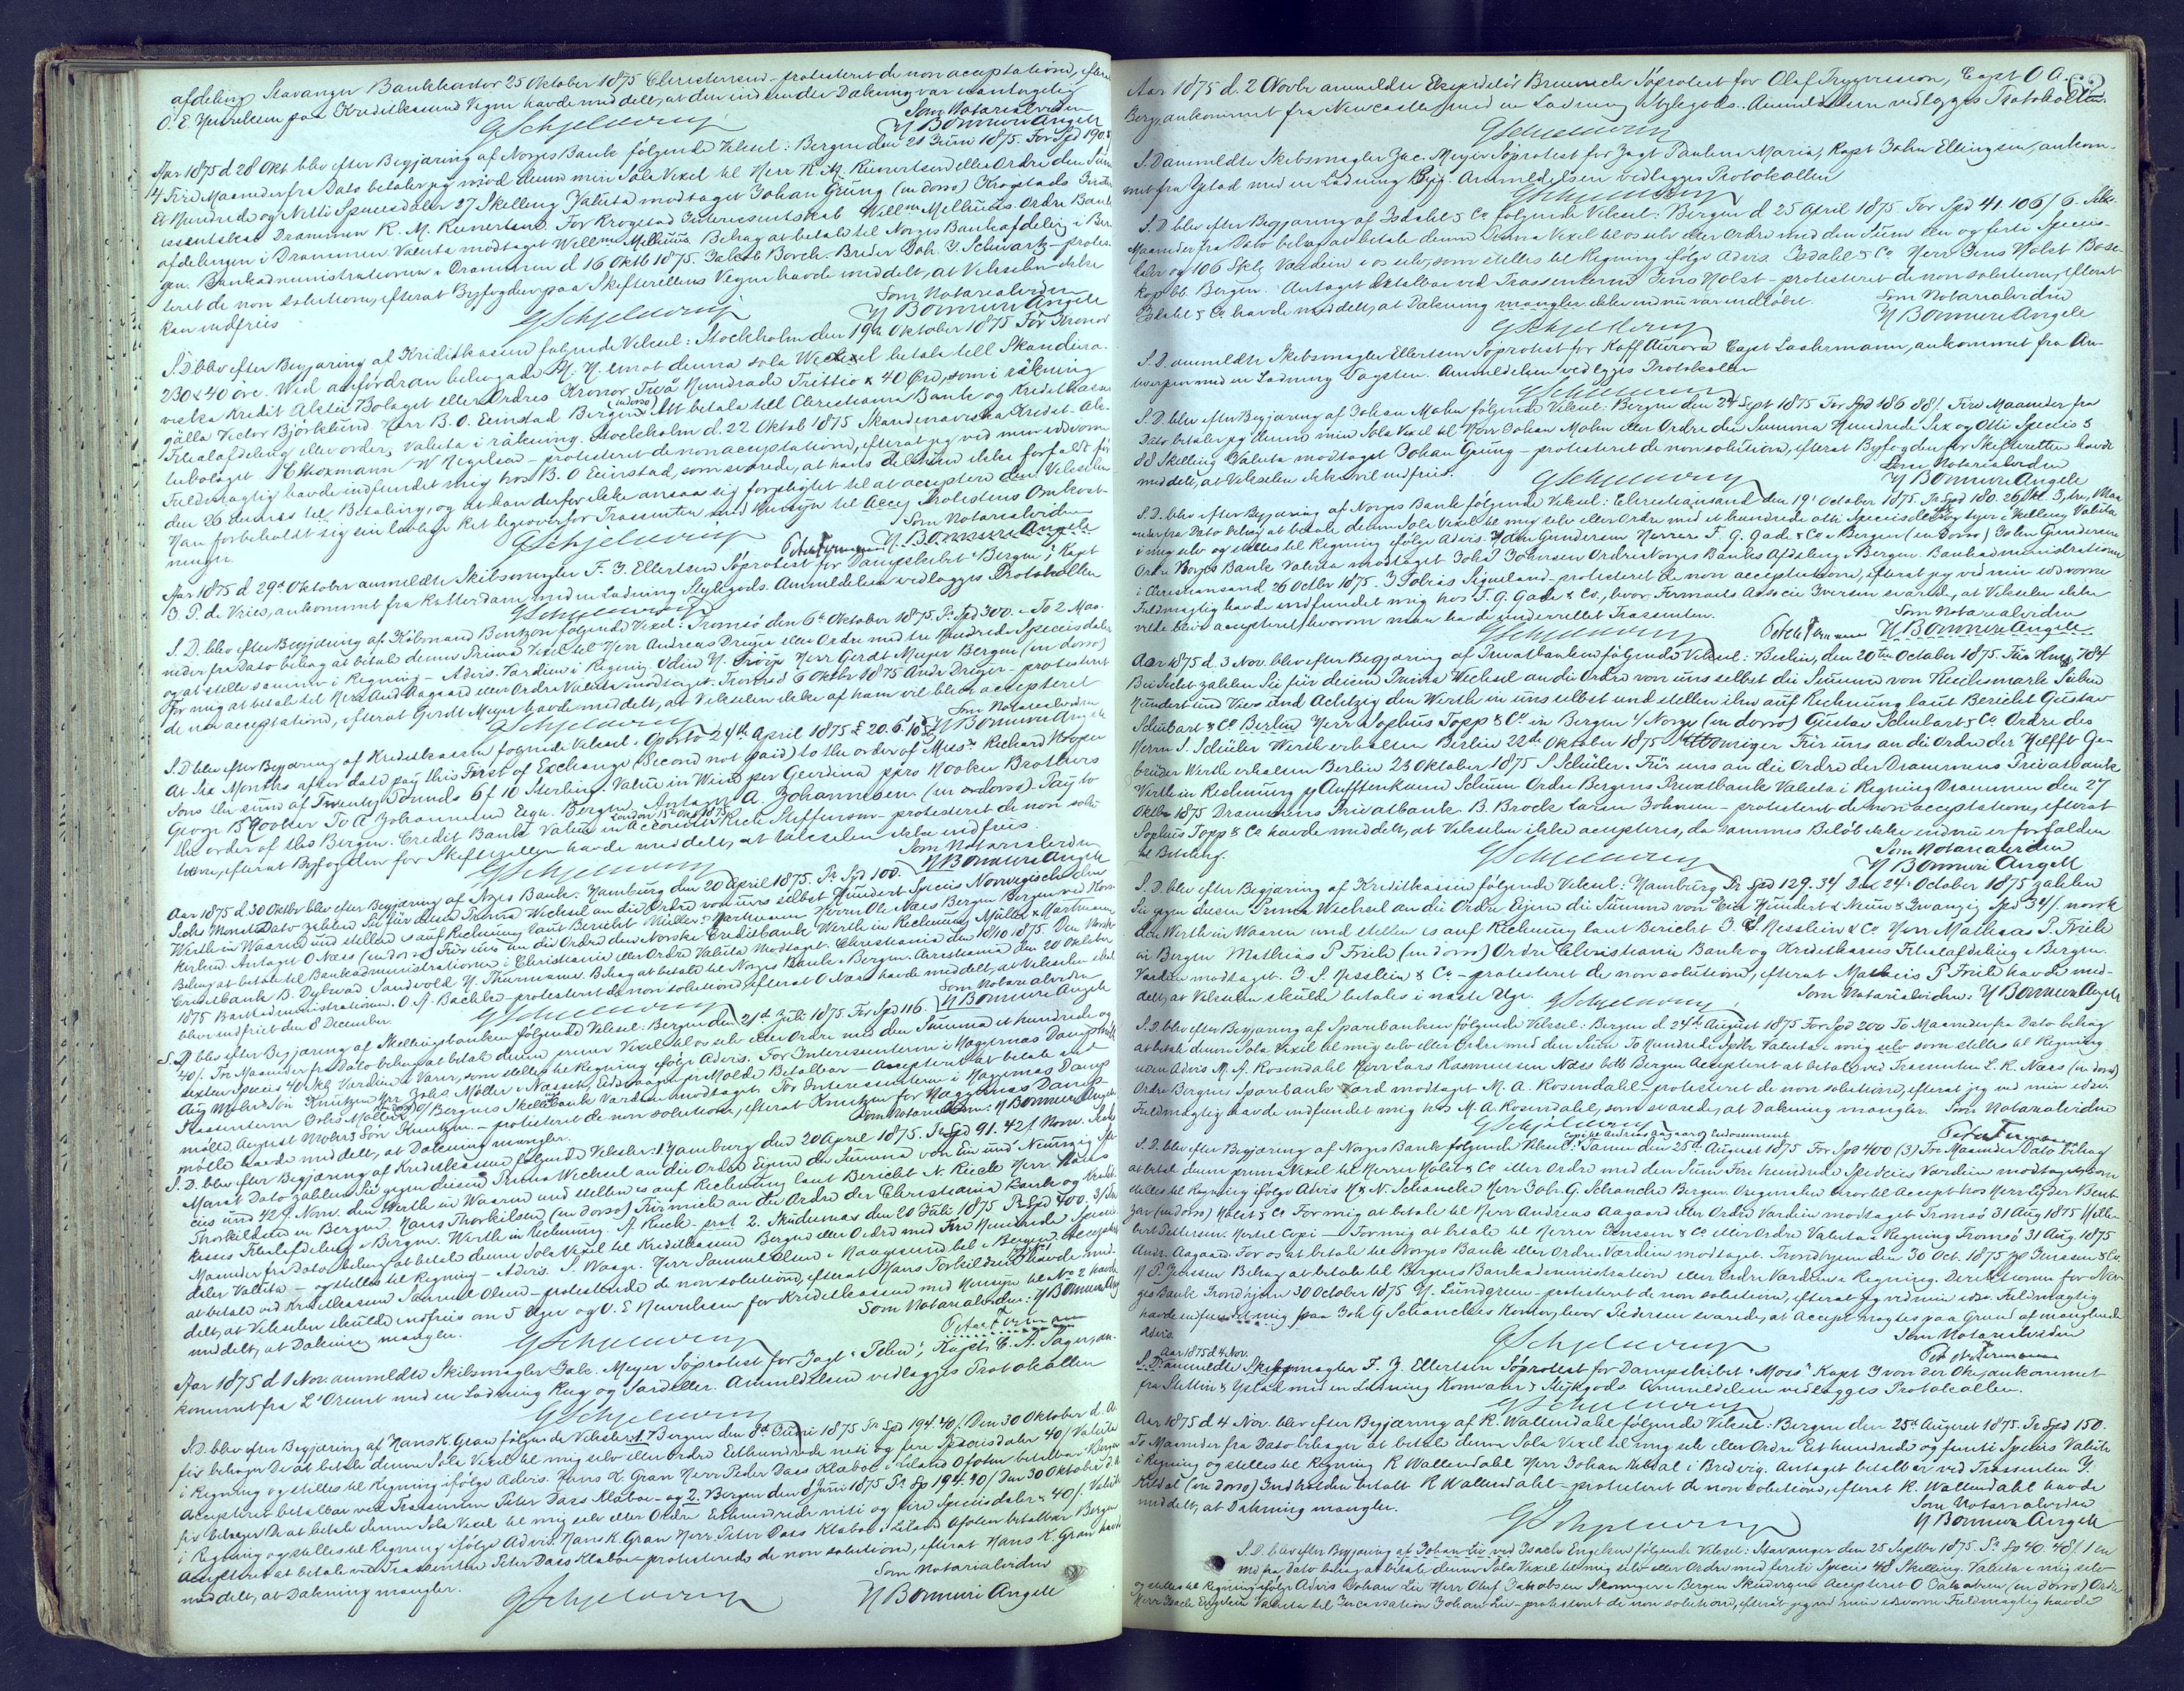 afdeling Stavanger Bankkontor 25 Oktober 1875 Christensen - protesteret de non acceptatione, efterat
O. E. paa Kreditkassens Vegne havde meddelt, at den indsendte Dækning var uantagelig
Som Notarialvidne
GSchjelderup
N Bonnevie Angell
Aar 1875 d 28 Okt. blev efter Begjæring af Norges Bank følgende Veksel: Bergen den 21 Juni 1875. For Spd 190.
4 Fire Maaneder fra Dato betaler jeg mod denne min Sola Vexel til Herr R. M. Reinertsen eller Ordre den Sum
Et Hundrede og Nitti Speciesdaler 27 Skelling Valuta modtaget Johan Grung (in dorso) Krogstads
Drammen R. M. Reinertsen. For Krogstad Interessentskab Willm Mellbüe Ordre Bank
afdelingen i Drammen Valuta modtaget Willm Mellbüe. Behag at betale til Norges Bankafdeling i Ber-
gen. Bankadministrationen i Drammen d 16 Oktb 1875. Jakob Borch. Joh. I. Schwartz - protes-
teret de non solutione, efterat Byfogden paa Skifterettens Vegne havde meddelt, at Vekselen ikke
kan indfries
Som Notarialvidne
GSchjelderup
N Bonnevie Angell
S. D blev efter Begjæring af Kreditkassen følgende Veksel: Stockholm den 19de Oktober 1875 För Kronor
230 & 40 öre. Wid anfordran behagade Hr. H. emot denna sola Wexel betala till Skandina-
viska Kredit Aktie Bolaget eller Ordres Kronor Två Hundrade Trittio & 40 Öre, som i räkning
gälla Victor Björklund Herr B. O. Eeinstad Bergen (in dorso) Att betala till Christiania Bank og Kreditkasse
Filialafdeling eller order, Valuta i räkning. Stockholm d. 22 Oktob 1875 Skandinaviska Kredit-Ak-
tiebolaget - protesteret de non acceptatione, efterat jeg ved min edsvorne
Fuldmægtig havde indfundet mig hos B. O Eeinstad, som svarede, at hans ikke forfaldt før
den 26 dennes til Betaling, og at han derfor ikke ansaa sig forpligtet til at acceptere den Vekselen
Man forbeholdt sig sin lovlige Ret ligeoverfor Trassenten med Hensyn til Protestens Omkost-
ninger.
Som Notarialvidne
GSchjelderup
Peter Fermann N Bonnevie Angell
Aar 1875 d 29de Oktober anmeldte Skibsmægler F. J. Ellertsen Søprotest for Dampskibet "Bergen", Kapt
J. P. de Vries, ankommet fra Rotterdam med en Ladning Stykgods. Anmeldelsen vedlægges Protokollen
GSchjelderup
S. D. blev efter Begjæring af Kjøbmand Bentzon følgende Vexel: Tromsø den 6te Oktober 1875. Pr. Spd 300. - To 2 Maa-
neder fra Dato behag at betale denne Prima Vexel til Herr Andreas Dreyer eller Ordre med tre Hundrede Speciesdaler
og at stille samme i Regning - Advis. Værdien i Regning. Odin N. Herr Gerdt Meyer Bergen (in dorso)
For mig at betale til Herr And Aagaard eller Ordre Valuta modtaget. Tromsø 6 Oktbr 1875 Andr Dreyer - protesteret
de non acceptatione, efterat Gerdt Meyer havde meddelt, at Vekselen ikke af ham vil blive accepteret
Som Notarialvidne
GSchjelderup
N Bonnevie Angell
S. D blev efter Begjæring af Kreditkassen følgende Veksel: Oporto 24th April 1875 £ 20. 6. 10
At Six Months after date pay this First of Exchange (Second not paid) to the order of Messrs Richard Hooper
Sons the sum of Twenty Pounds 6/ 10 Sterling. Value in Wine per Geerdina ppro Hooker Brothers
George B Hooker To A Johannesen Esqu. Bergen. Antaget A. Johannesen. (in dorso). Pay to
the order of the Bergen. Credit Bank Value in Account. London 15th Okt 1875 Rich. Steffensen - protesteret de non solu-
tione, efterat Byfogden for Skifteretten havde meddelt, at Vekselen ikke indfries
Som Notarialvidne
GSchjelderup
N Bonnevie Angell
Aar 1875 d. 30 Oktbr blev efter Begjæring af Norges Bank: Hamburg den 20 April 1875. Pr Spd 100.
Sechs Monat Dato zahlen Sie für diesen Prima Wechsel an die Ordre von uns selbst Hundert Species Norwegisch den
Werth in Waaren und stellen es auf Rechnung laut Bericht Müller & Hartmann Herrn Ole Næs Bergen Bergen ved
Antaget O Næss (in dorso) Für uns an die Ordre der Norske Creditbank Werth in Rechnung Müller & Hartmann
Behag at betale til Bankadministrationen i Christiania eller Ordre Valuta Modtaget. Christiania den 18/10 1875. Den Norske
Creditbank B. Dybwad Sandvold N. Thurmann. Behag at betale til Norges Bank i Bergen. Christiania den 20 Oktober
1875 Bankadministrationen. O. A. Bachke - protesteret de non solutione, efterat O Næss havde meddelt, at Vekselen skal
blive indfriet den 8 December.
Som Notarialvidne
GSchjelderup
N Bonnevie Angell
S. D blev efter Begjæring af Skillingsbanken følgende Veksel: Bergen den 21de Juli 1875. For Spd 116.
40/. Tre Maaneder fra Dato behag at betale denne primer Vexel til os selv eller Ordre med den Summa et hundrede og
sexten Species 40 Skl Værdien i Varer, som stilles til Regning ifølge Advis. For Interessenterne i Dampmølle
Aug Mohr & Søn Knutzen Hrr Johs Møller i Nasset, Eidsvaag pr Molde Betalbar - Accepteret at betale ved
Trassenterne Johs Møller (in dorso) Bergens Skillingsbank Værdien modtaget. For Interessenterne i Damp
mølle August Mohr & Søn Knutzen. - protesteret de non solutione, efterat Knutzen for Damp-
mølle havde meddelt, at Dækning mangler.
Som Notarialvidne: N Bonnevie Angell
S. D. blev efter Begjæring af Kreditkassen følgende Veksler: 1 Hamburg den 20 April 1875. Pr Spd 91. 42/. Norw.
Monat Dato zahlen Sie gegen diesen Prima Wechsel an die Ordre Eigene die Summa von Ein und Neunzig Spe-
cies und 42/. Norw. den Werth in Waaren und stellen es auf Rechnung laut Bericht N. Rieck Herr Hans
Thorkildsen in Bergen. Hans Thorkildsen (in dorso) Für mich an die Ordre der Christiania Bank og Kredit-
kasses Filialafdeling i Bergen. Werth in Rechnung. N. Rieck - prot. 2. Skudesnæs den 20 Juli 1875 Pr Spd 400. 3/
Maaneder fra Dato behag at betale denne Sola Vexel til Kreditkassen Bergen eller Ordre med Fire Hundrede Species
daler Valuta - og stilles til Regning - Advis. S. Waage. Herr Samuel Olsen i Haugesund bet. i Bergen. Accepteret
at betale ved Kreditkassen Samuel Olsen - protesterede de non solutione, efterat Hans Torkildsen havde med-
delt, at Vekselen skulde indfries om 5 Uger og O. E for Kreditkassen med Hensyn til No 2 havde
meddelt, at Dækning mangler.
Som Notarialvidne: N Bonnevie Angell
Peter Fermann
GSchjelderup
Aar 1875 d 1 Nov. anmeldte Skibsmægler Jakr. Meyer Søprotest for Jagt "Pelin", Kapt. C. A. Sager, an-
kommet fra L'Orient med en Ladning Rug og Sardeller. Anmeldelsen vedlægges Protokollen
GSchjelderup
S. D. blev efter Begjæring af Hans K. Gran følgende Veksler: 1. Bergen den 8de Juni 1875 Pr Spd 194. 40/. Den 30 Oktober d. A.
fix behager De at betale denne Sola Vexel til mig selv eller Ordre Ethundrede niti og fire Speciesdaler 40/ Valuta
i Regning og stilles til Regning ifølge Advis. Hans K. Gran Herr Peder Dass Klæboe i Liland Ofoten betalbar i Bergen
Accepteret betalbar ved Trassenten Peter Dass Klæboe - og 2. Bergen den 8 Juni 1875 Pr Sp 194. 40/ Den 30 Oktober d. A.
fix behager De at betale denne Sola Vexel til mig selv eller Ordre Ethundrede niti og fire Speciesdaler & 40/. Valuta
i Regning og stilles til Regning ifølge Advis. Hans K. Gran Herr. Peter Dass Klæboe i Liland Ofoten betalbar Bergen
Accepteret at betale ved Trassenten Peter Dass Klæboe - protesterede de non solutione, efterat Hans K. Gran havde
meddelt, at Dækning mangler.
Som Notarialvidne
GSchjelderup
N Bonnevie Angell
62
Aar 1875 d. 2 Novbr anmeldte Expeditør Brunnich Søprotest for Olaf Trygvesson, Capt O A.
Berg, ankommet fra Newcastle med en Ladning Stykgods. Anmeldelsen vedlægges Protokollen.
GSchjelderup
S. D anmeldte Skibsmægler Jac. Meyer Søprotest for Jagt Paulena Maria, Kapt John Ellingsen, ankom-
met fra Ystad med en Ladning Byg. Anmeldelsen vedlægges Protokollen
GSchjelderup
S. D blev efter Begjæring af Isdahl & Co følgende Veksel: Bergen d 25 April 1875 For Spd 41. 106/ 6. Seks
Maaneder fra Dato behag at betale denne Prima Vexel til os selv eller Ordre med den Sum een ogførti Species-
daler og 106 Sklg Værdien i os selv, som stilles til Regning ifølge Advis. Isdahl & Co Herr Jens Holst Bose-
kop bt. Bergen. Antaget betalbar ved Trassenterne Jens Holst - protesteret de non solutione, efterat
Isdahl & Co havde meddelt, at Dækning mangler ikke endnu var indløbet.
Som Notarialvidne
GSchjelderup
N Bonnevie Angell
S. D. anmeldte Skibsmægler Ellertsen Søprotest for Koff Aurora Capt Laahrmann, ankommet fra An-
twerpen med en Ladning Tagsten. Anmeldelsen vedlægges Protokollen
GSchjelderup
S. D. blev efter Begjæring af Johan Mohn følgende Veksel: Bergen den 24 Sept 1875 For Spd 186 88/. Fire Maaneder fra
Dato betaler jeg denne min Sola Vexel til Herr Johan Mohn eller Ordre den Summa Hundrede Sex og Otti Species &
88 Skelling Valuta modtaget Johan Grung - protesteret de non solutione, efterat Byfogden for Skifteretten havde
meddelt, at Vekselen ikke vil indfries.
Som Notarialvidne
GSchjelderup
N Bonnevie Angell
S. D. blev efter Begjæring af Norges Bank følgende Veksel: Christiansand den 19de October 1875. Pr Spd 180. 26. 3, tre, Maa-
neder fra Dato behag at betale denne Sola Vexel til mig selv eller Ordre med et hundrede otti Speciesdaler og Skelling Valuta
i mig selv og stilles til Regning ifølge Advis. John Gundersen Herrer F. G. Gade & Co i Bergen (in dorso) John Gundersen
Ordre Norges Bank Valuta modtaget Johs Johnsen Ordre Norges Banks Afdeling i Bergen. Bankadministrationen
i Christiansand 26 Octbr 1875. J. Tobias Sigueland - protesteret de non acceptatione, efterat jeg ved min edsvorne
Fuldmægtig havde indfundet mig hos F. G. Gade & Co., hvor Firmaets Associe Iversen svarede, at Vekselen ikke
vilde blive accepteret, hvorom man havde underrettet Trassenten.
Som Notarialvidne
GSchjelderup
Peter Fermann N Bonnevie Angell
Aar 1875 d. 3 Nov. blev efter Begjæring af Privatbanken følgende Veksel: Berlin, den 20ten October 1875. Für Rmk 784
Bei Sicht zahlen Sie für diesen Prima Wechsel an die Ordre von uns selbst die Summe von Reichsmark Sieben
Hundert und Vier und Achtzig den Werth in uns selbst und stellen ihn auf Rechnung laut Bericht Gustav
Schubart & Co Berlin Herr Sophus Topp & Co in Bergen i/ Norge (in dorso) Gustav Schubart & Co Ordre des
Herrn S. Schüler Werth erhalten Berlin 22de Oktober 1875 Für uns an die Ordre der Helfft Ge-
brüder Werth erhalten Berlin 23 Oktober 1875 S Schüler. Für uns an die Ordre der Drammens Privatbank
Werth in Rechnung Ordre Bergens Privatbank Valuta i Regning Drammen den 27
Oktbr 1875 Drammens Privatbank. B. Brocke Larsen Johnsen - protesteret de non acceptatione, efterat
Sophus Topp & Co havde meddelt, at Vekselen ikke accepteres, da sammes Beløb ikke endnu er forfalden
til Betaling.
Som Notarialvidne
GSchjelderup
N Bonnevie Angell
S. D. blev efter Begjæring af Kreditkassen følgende Veksel: Hamburg Pr Spd 129. 34 Den 24 October 1875 zahlen
Sie gegen diesen Prima Wechsel an die Ordre Eigene die Summe von Ein Hundert & Neun & Zwanzig Spd 34/. norsk
den Werth in Waaren und stellen es auf Rechnung laut Bericht J. S. Nesslein & Co Herr Mathias P. Friele
in Bergen Mathias P Friele (in dorso) Ordre Christiania Bank og Kreditkasses Filialafdeling i Bergen.
Værdien modtaget. J. S. Nesslein & Co - protesteret de non solutione, efterat Mathias P Friele havde med-
delt, at Vekselen skulde betales i næste Uge.
GSchjelderup
Som Notarialvidne: N Bonnevie Angell
S. D. blev efter Begjæring af Sparebanken følgende Veksel: Bergen d. 24de August 1875 For Spd 200 To Maaneder fra Dato behag
at betale denne Sola Vexel til mig selv eller Ordre med den Sum To Hundrede Spdlr Valuta i mig selv som stilles til Regning
uden Advis M. A. Rosendahl Herr Lars Rasmussen Næss bet. Bergen Accepteret at betale ved Trassenten L. R. Næss (in dorso)
Ordre Bergens Sparebank Værd modtaget M. A. Rosendahl - protesteret de non solutione, efterat jeg ved min edsv.
Fuldmægtig havde indfundet mig hos M. A. Rosendahl, som svarede, at Dækning mangler. Som Notarialvidne
GSchjelderup
Peter Fermann
S. D. blev efter Begjæring af Norges Bank følgende Veksel: Copi til Andreas Aagaards Endossement Tanen den 25de August 1875 For Spd 400 (3) Tre Maaneder Dato behag
at betale denne prima Vexel til Herrer Holst & Co eller Ordre med den Sum Fire hundrede Species Værdien modtaget, som
stilles til Regning ifølge Advis N. Schancke Herr Joh. G. Schancke Bergen. Originalen beror til Accept hos Herr Eyder Bent-
zon (in dorso) Holst & Co For mig at betale til Herr Andreas Aagaard eller Ordre Værdien modtaget Tromsø 31 Aug 1875
Pettersen. Hertil Copi - For mig at betale til Herrer Jenssen & Co eller Ordre Valuta i Regning Tromsø 31 Aug. 1875
Andr. Aagaard. For os at betale til Norges Bank eller Ordre Værdien modtaget. Trondhjem den 30 Oct. 1875 pp Jenssen & Co.
N P. Jenssen Behag at betale til Bergens Bankadministration eller Ordre Værdien i Regning. Direktionen for Nor-
ges Bank Trondhjem 30 October 1875 N. Lundgreen - protesteret de non solutione, efterat jeg ved min edsv. Fuldmægtig
havde indfundet mig paa Joh G Schanckes Kontor, hvor Pedersen svarede, at Accept nægtes paa Grund af manglende
Advis.
Som Notarialvidne
GSchjelderup
Peter Fermann
Aar 1875 d. 4. Nov.
S. D. anmeldte Skibsmægler F. J. Ellertsen Søprotest for Dampskibet "Moss" Kapt J von der Ohe, ankommet
fra Stettin & Ystad med en Ladning Kornvarer & Stykgods. Anmeldelsen vedlægges Protokollen.
GSchjelderup
Aar 1875 d. 4 Nov. blev efter Begjæring af R. Wallendahl følgende Veksel: Bergen den 25de August 1875. Pr Spd 150.
To Maaneder fra Dato behager at betale denne Sola Vexel til mig selv eller Ordre Et hundrede og femti Species Valuta
i Regning og stilles til Regning R Wallendahl Herr Johan Kildal i Bredvig. Antaget betalbar ved Trassenten J.
Kildal (in dorso) Indholdet betalt R Wallendahl - protesteret de non solutione, efterat R. Wallendahl havde
meddelt, at Dækning mangler.
Som Notarialvidne
GSchjelderup
N Bonnevie Angell
S. D. blev efter Begjæring af Johan Lie ved Isach Engelsen følgende Veksel: Stavanger den 25 Septbr 1875. Pr Sp 40. 48/ 1 en
Md fra Dato behag at betale denne Sola Vexel til mig selv eller Ordre med førti Species 48 Skelling. Valuta i mig selv
og stilles til Regning ifølge Advis Johan Lie Herr Oluf Jakobsen i Bergen Skudevigen Accepteret O Jakobsen (in dorso) Ordre
Herr Isach Engelsen Valuta til Incassation Johan Lie - protesteret de non solutione, efterat jeg ved min edsvorne Fuldmægtig havde